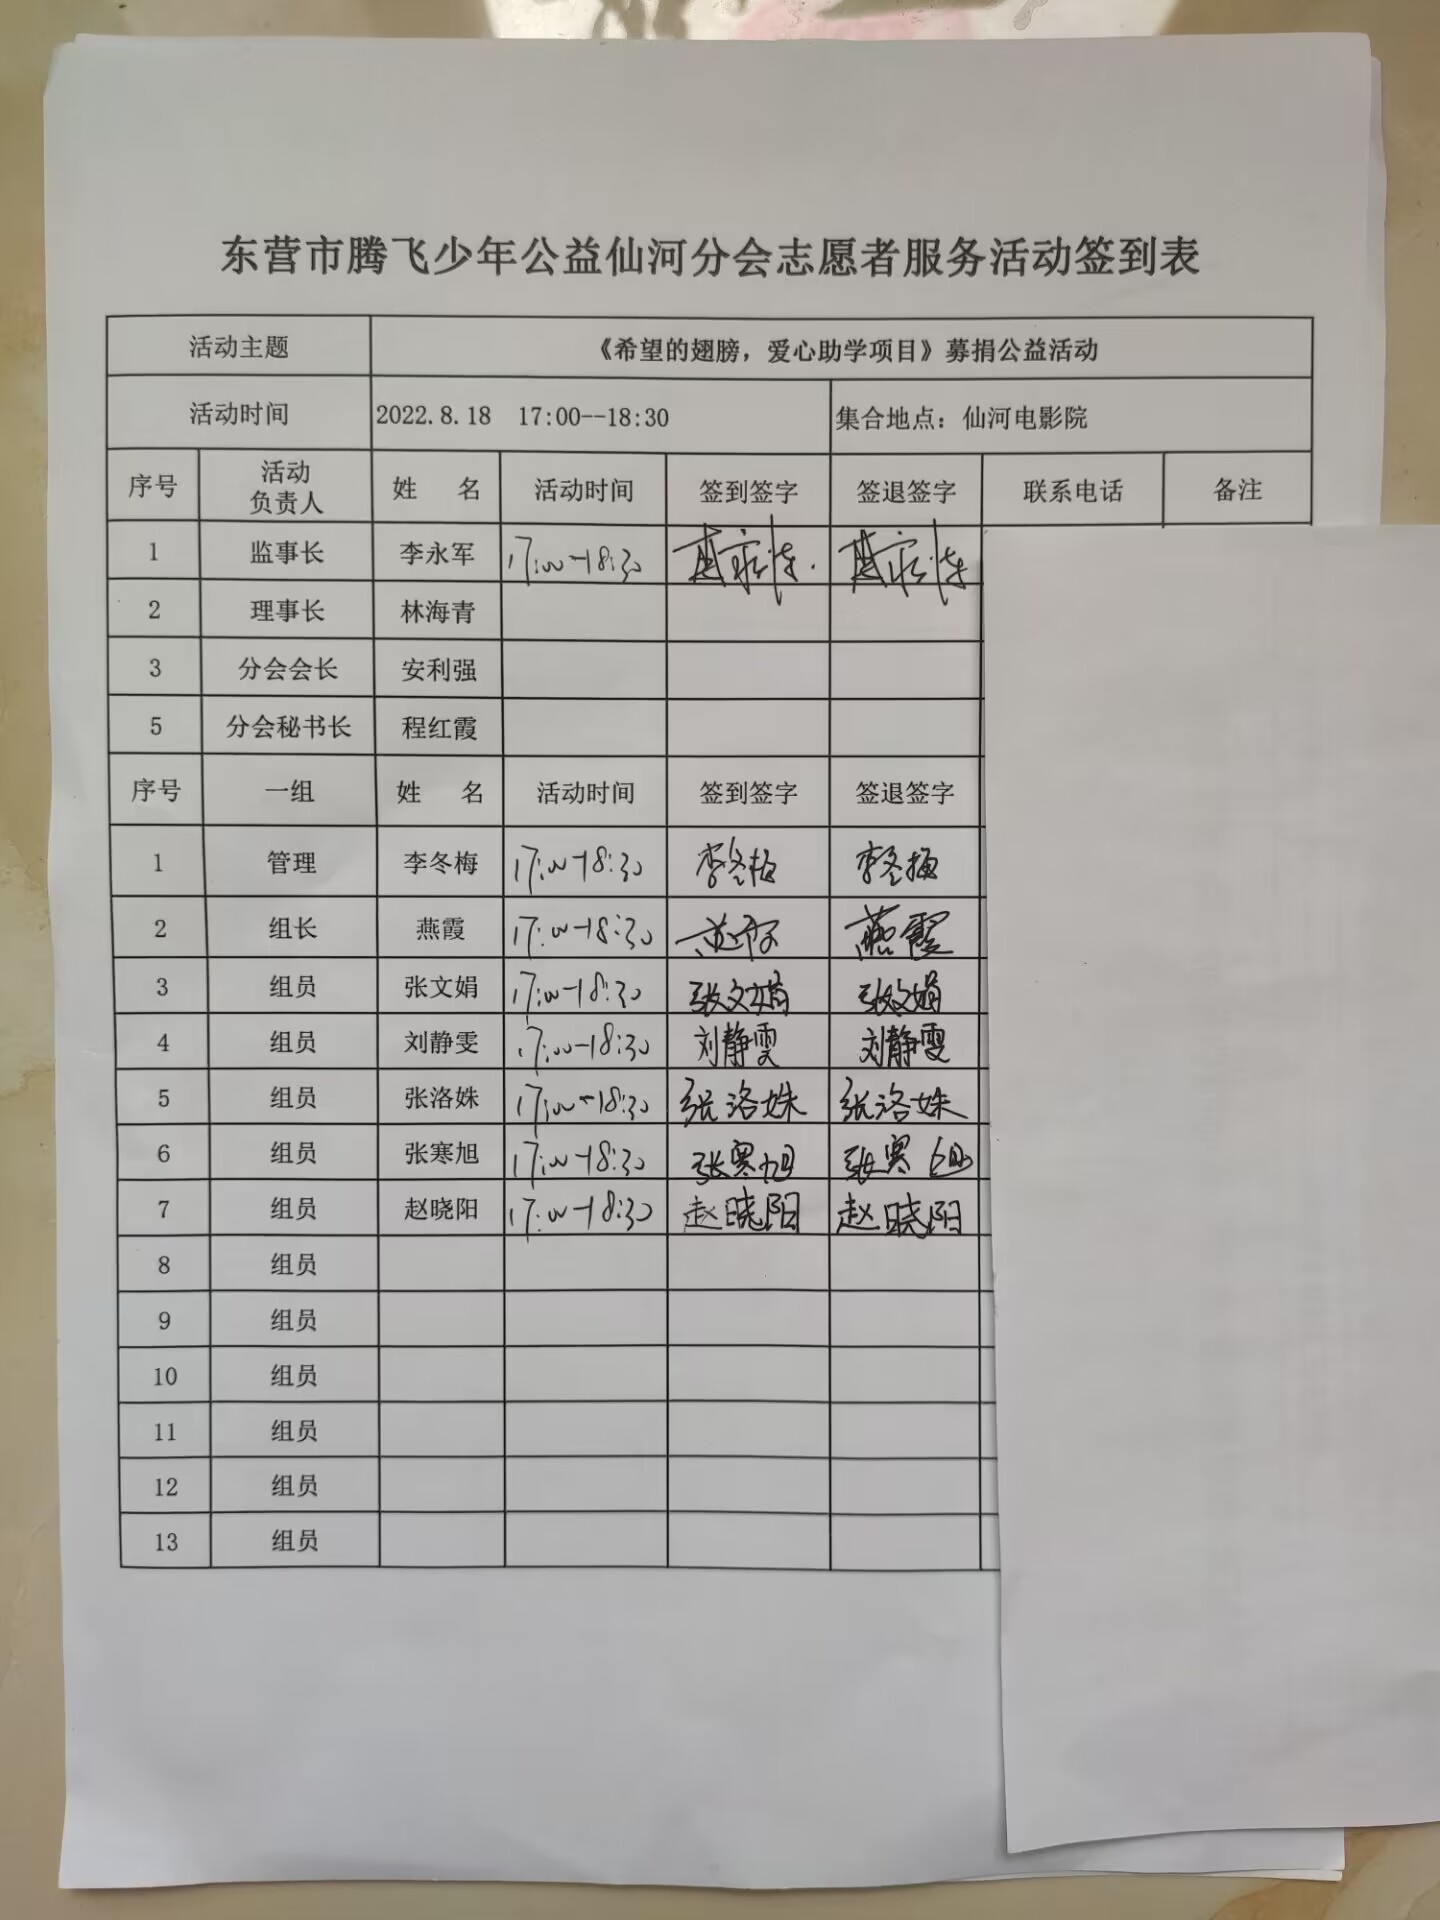 东营市腾飞少年公益仙河分会志愿者服务活动签到表
活动主题 《希望的翅膀，爱心助学项目》募捐公益活动
活动时间 2022.8.18 17:00--18:30 集合地点：仙河电影院
序号 活动负责人 姓 名 活动时间 签到签字 签退签字 联系电话 备注
1 监事长 李永军 17:00-18:30
2 理事长 林海青
3 分会会长 安利强
5 分会秘书长 程红霞
序号 一组 姓 名 活动时间 签到签字 签退签字
1 管理 李冬梅 17:00-18:30 李冬梅 李冬梅
2 组长 燕霞 17:00-18:30 燕霞 燕霞
3 组员 张文娟 17:00-18:30 张文娟 张文娟
4 组员 刘静雯 17:00-18:30 刘静雯 刘静雯
5 组员 张洛姝 17:00-18:30 张洛姝 张洛姝
6 组员 张寒旭 17:00-18:30 张寒旭 张寒旭
7 组员 赵晓阳 17:00-18:30 赵晓阳 赵晓阳
8 组员
9 组员
10 组员
11 组员
12 组员
13 组员